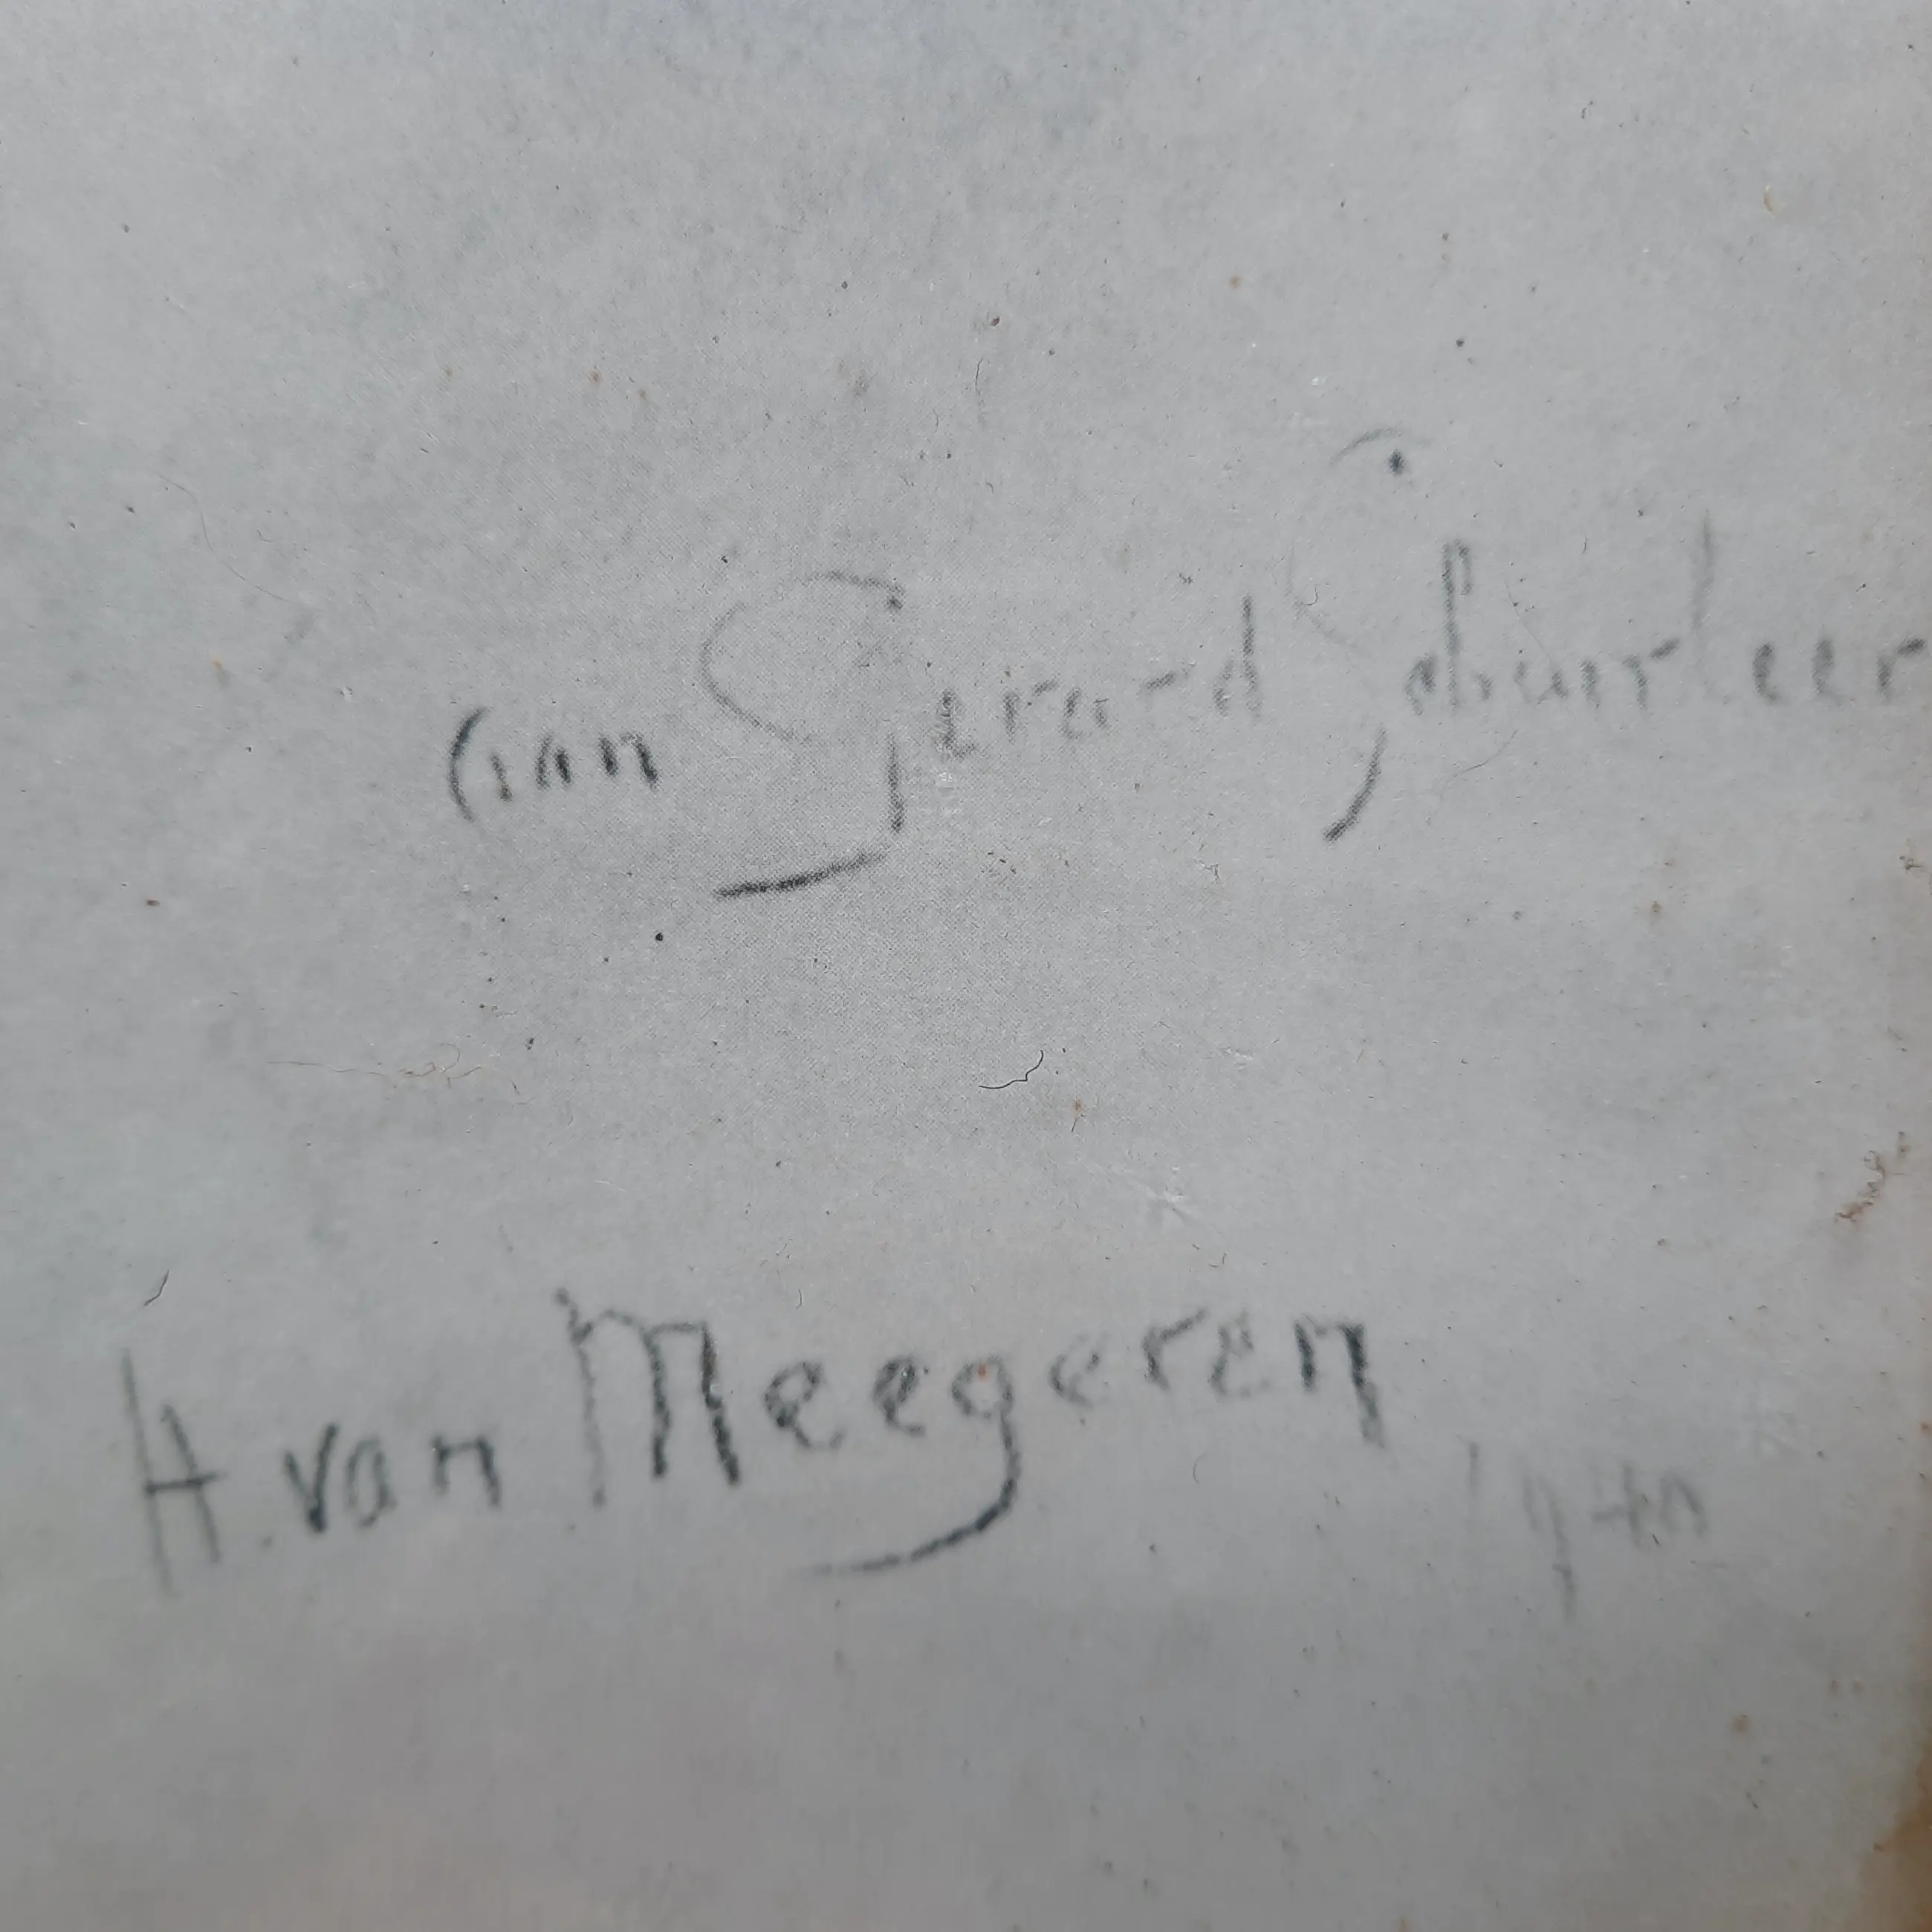 aan Gerard Scheurleer
H. van Meegeren 1940